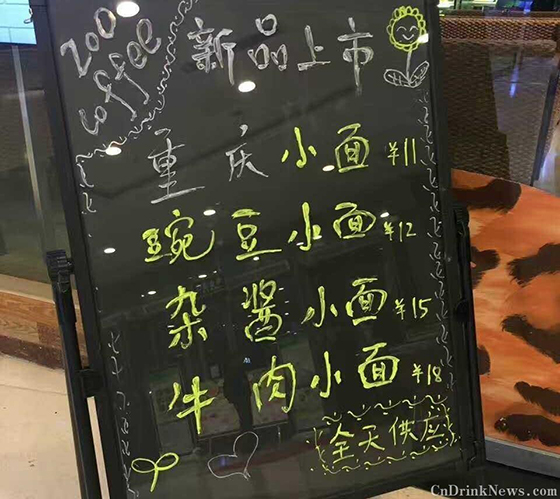 zoo
coffee
新品上市
重庆小面 ¥11
豌豆小面 ¥12
杂酱小面 ¥15
牛肉小面 ¥18
全天供应
CnDrinkNews.com